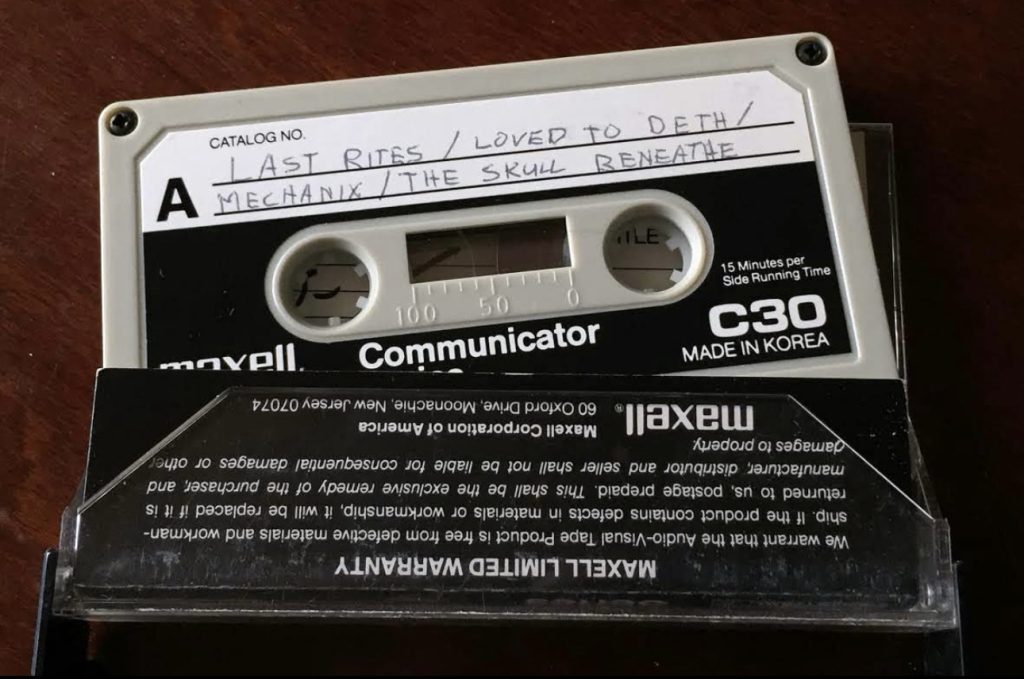 CATALOG NO.
LAST RITES / LOVED TO DETH /
A
MECHANIX / THE SKULL BENEATHE
15 Minutes per
Side Running Time
100 50 0
C30
MADE IN KOREA
maxell
Communicator
MAXELL LIMITED WARRANTY
We warrant that the Audio-Visual Tape Product is free from defective materials and workman-
ship. If the product contains defects in materials or workmanship, it will be replaced if it is
returned to us, postage prepaid. This shall be the exclusive remedy of the purchaser, and
manufacturer, distributor and seller shall not be liable for consequential damages or other
damages to property.
maxell®
Maxell Corporation of America
60 Oxford Drive, Moonachie, New Jersey 07074